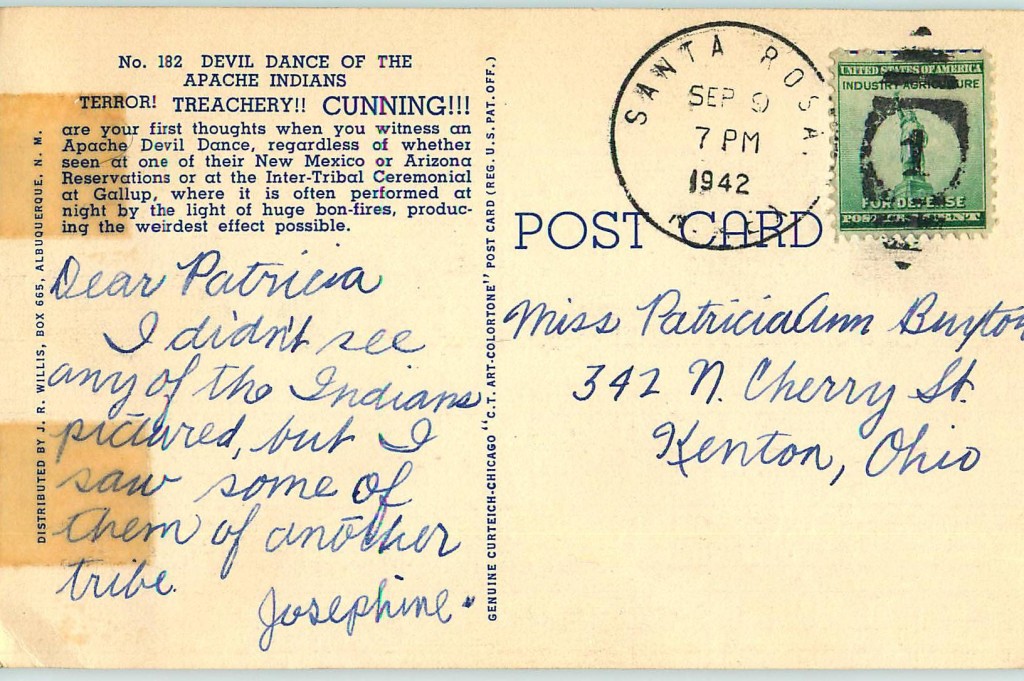 No. 182 DEVIL DANCE OF THE
APACHE INDIANS
TERROR! TREACHERY!! CUNNING!!!
are your first thoughts when you witness an
Apache Devil Dance, regardless of whether
seen at one of their New Mexico or Arizona
Reservations or at the Inter-Tribal Ceremonial
at Gallup, where it is often performed at
night by the light of huge bon-fires, produc-
ing the weirdest effect possible.
DISTRIBUTED BY J. R. WILLIS, BOX 665, ALBUQUERQUE, N. M.
Dear Patricia
I didn't see
any of the Indians
pictured, but I
saw some of
them of another
tribe.
Josephine.
GENUINE CURTEICH-CHICAGO "C.T. ART-COLORTONE" POST CARD (REG. U.S. PAT. OFF.)
POST CARD
SANTA ROSA,
SEP 9
7 PM
1942
UNITED STATES OF AMERICA
INDUSTRY AGRICULTURE
1
FOR DEFENSE
Miss Patricia Ann Buxton
342 N. Cherry St.
Kenton, Ohio